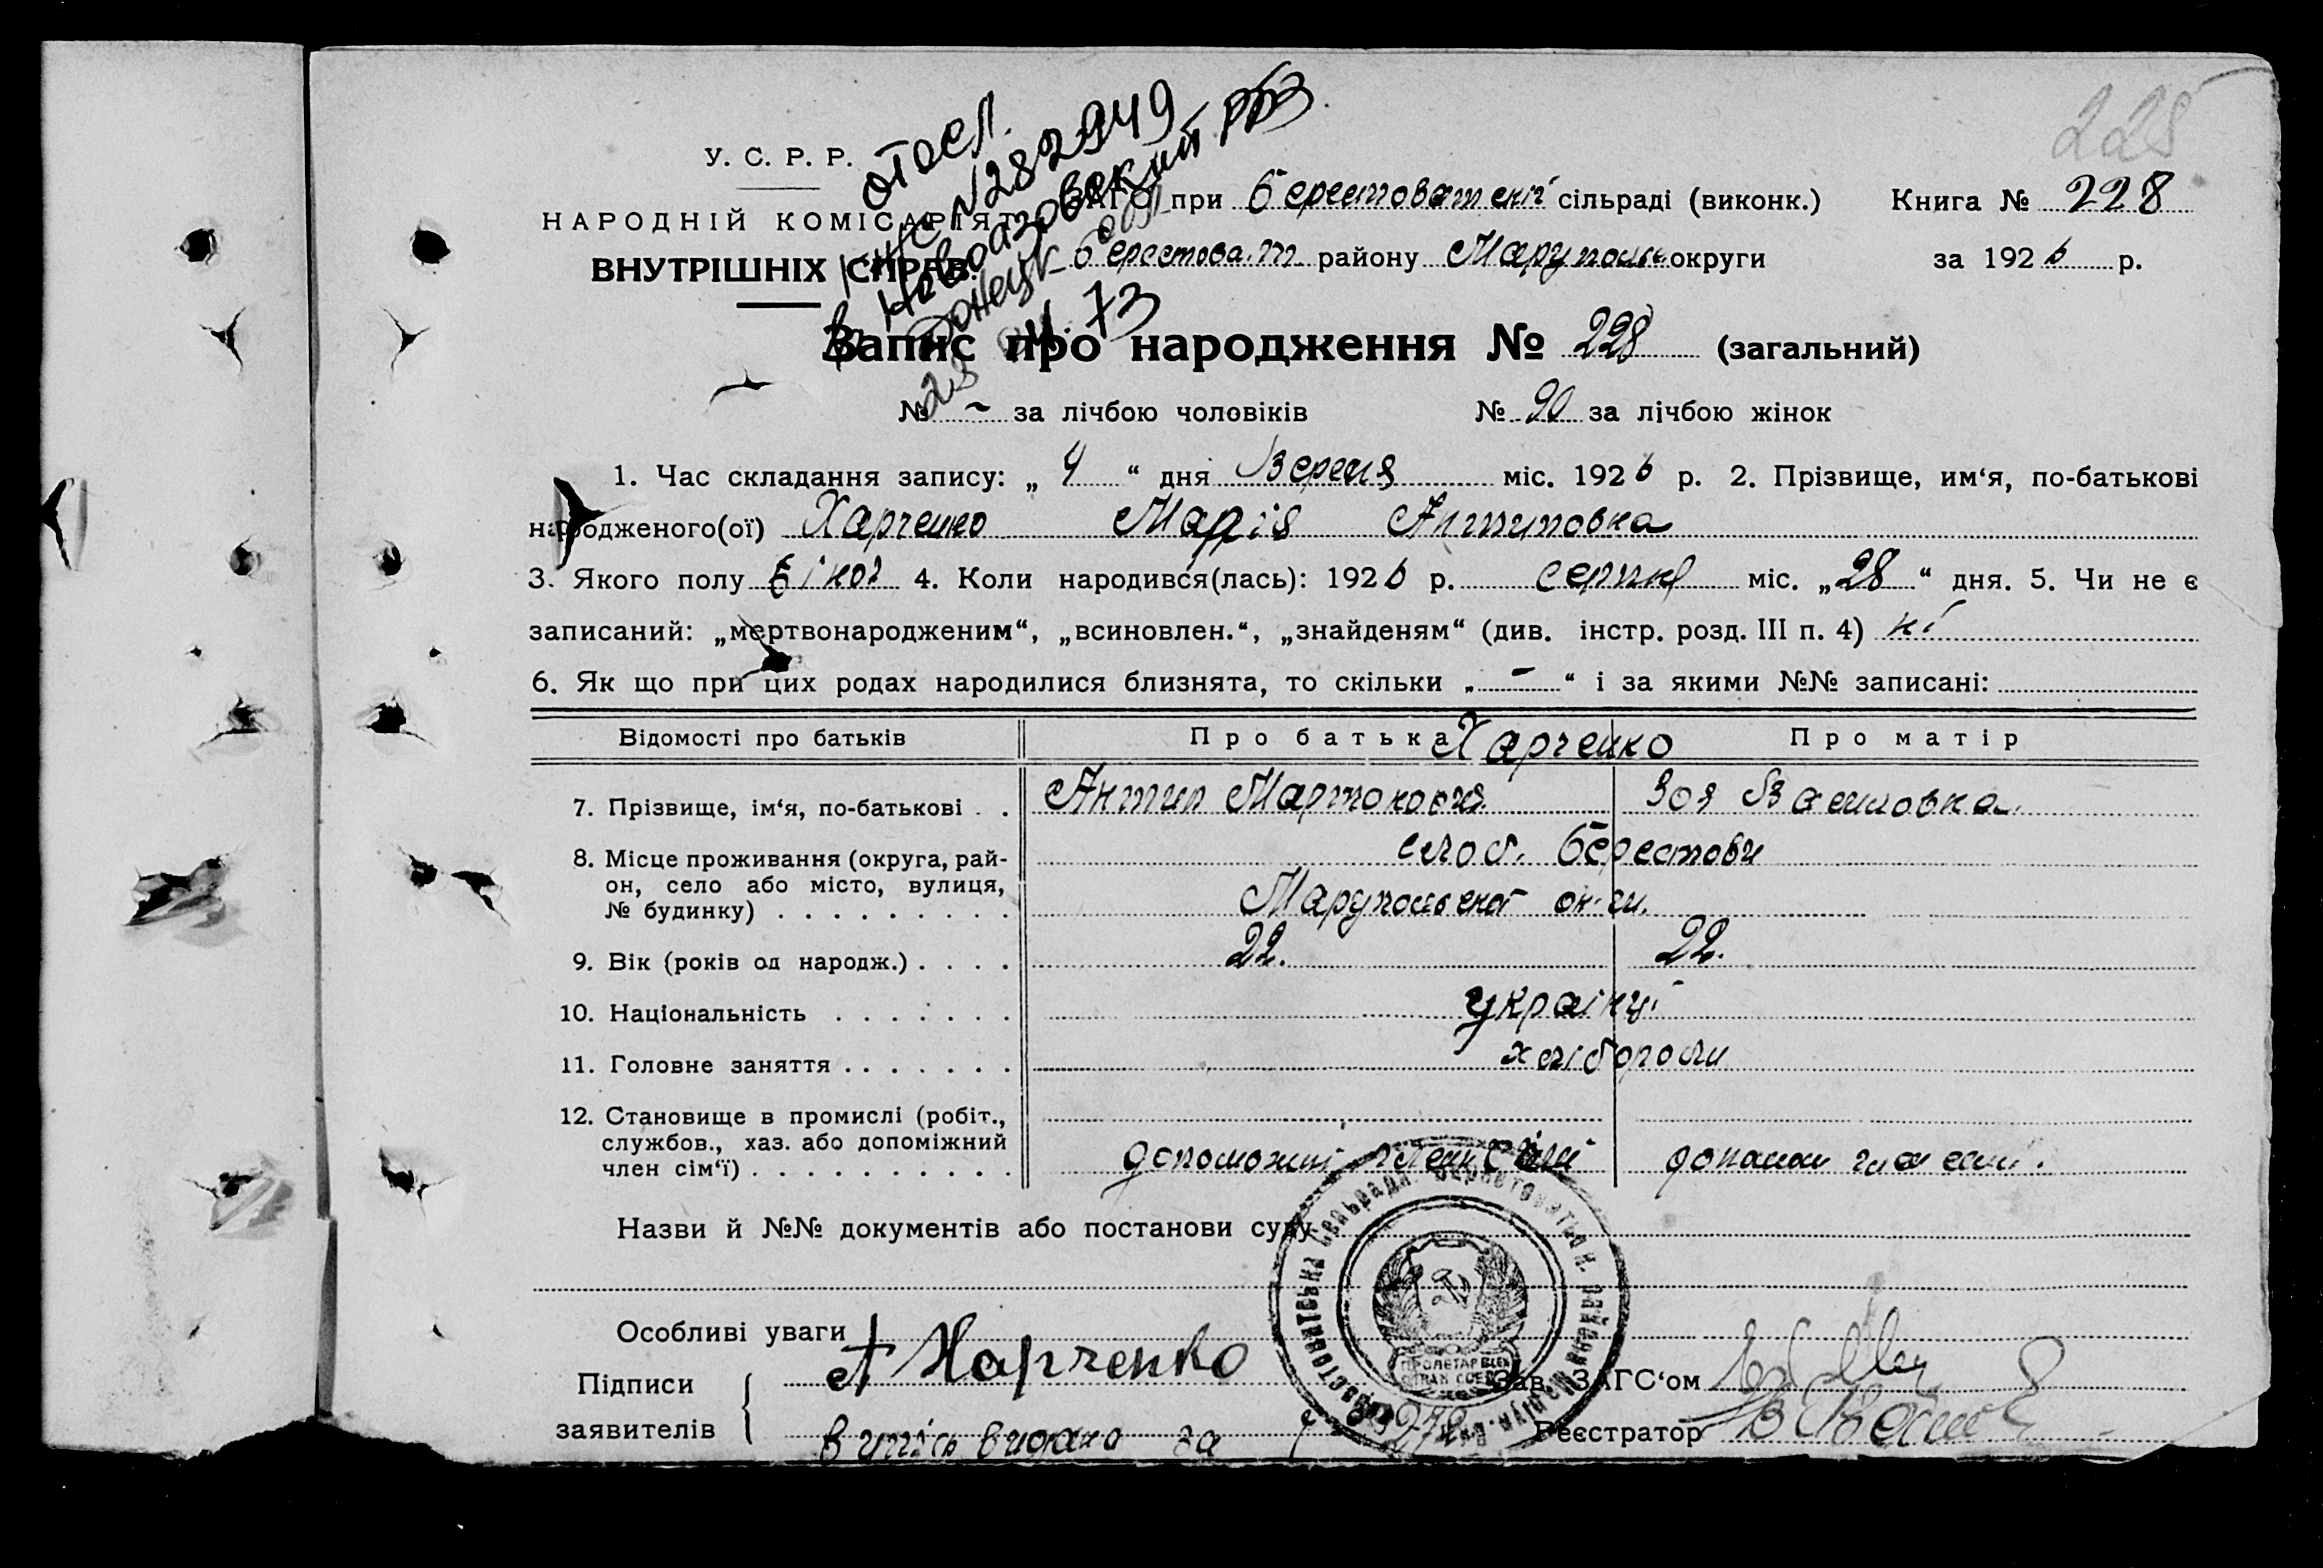 228
отосл.
У. С. Р. Р.
№282949
ЗАГС при Берестоватській сільраді (виконк.) Книга № 228
НАРОДНІЙ КОМІСАРІЯТ
в Новоазовский РБЗ
Донецк. обл.
ВНУТРІШНІХ СПРАВ.
Берестоват. району Марупольс округи за 1926 р.
28 04 73
Запис про народження № 228 (загальний)
№ ~ за лічбою чоловіків № 90 за лічбою жінок
1. Час складання запису: „ 4 “ дня Вересня міс. 1926 р. 2. Прізвище, им‘я, по-батькові
народженого(ої) Харченко Марія Антиповна
3. Якого полу жіноі 4. Коли народився(лась): 1926 р. серпня міс. „ 28 “ дня. 5. Чи не є
записаний: „мертвонародженим“, „всиновлен.“, „знайденям“ (див. інстр. розд. III п. 4) ні
6. Як що при цих родах народилися близнята, то скільки „ - “ і за якими №№ записані:
Відомості про батьків Про батька Харченко Про матір
7. Прізвище, ім‘я, по-батькові . . Антип Мартонович Зоя Василовна
8. Місце проживання (округа, рай- слоб. Берестови
он, село або місто, вулиця,
№ будинку) . . . . . . . . . Марупольскоі ок-ги.
9. Вік (років од народж.) . . . . 22. 22.
10. Національність . . . . . . . украінці
11. Головне заняття . . . . . . . хлібороби
12. Становище в промислі (робіт.,
службов., хаз. або допоміжний
член сім‘ї) . . . . . . . . . . допоможні член сімі допомож член семі.
Назви й №№ документів або постанови суду
Особливі уваги
А Харченко
Підписи
заявителів
Зав. ЗАГС‘ом
Реєстратор
ПРОЛЕТАР ВСЕХ
СТРАН СОЕД
випісь видана за